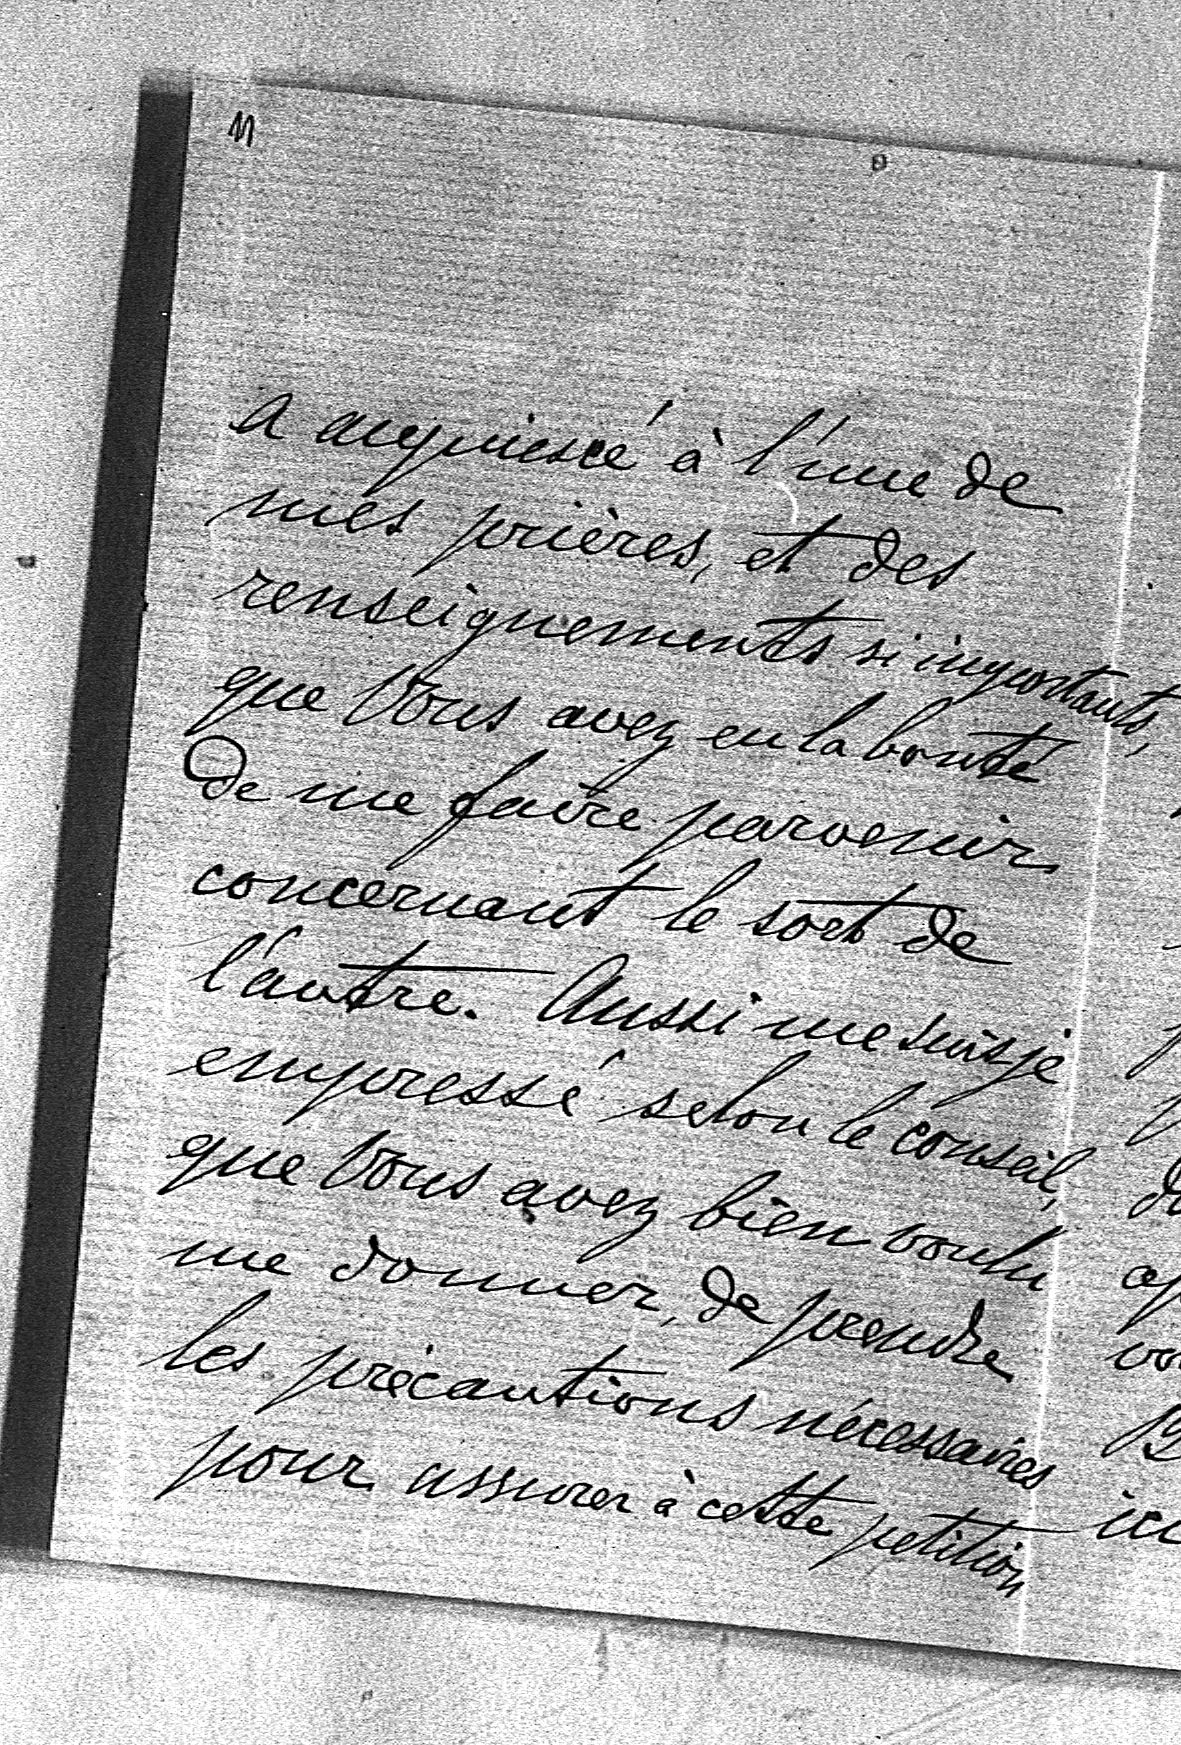 a acquiescé à l'une de
mes prières, et des
renseignements si importants,
que Vous avez eu la bonté
de me faire parvenir
concernant le sort de
l'autre. Aussi me suis je
empressé selon le conseil,
que Vous avez bien voulu
me donner, de prendre
les précautions nécessaires
pour assurer à cette petition